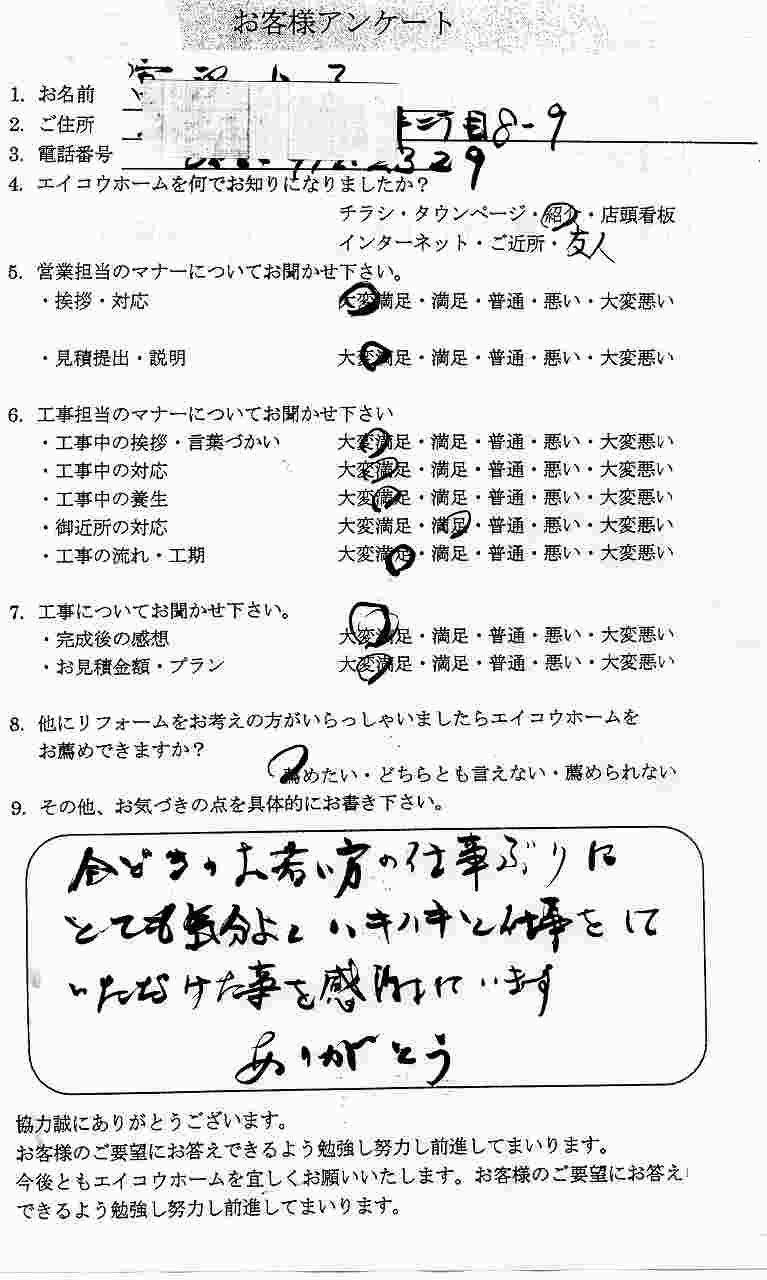 お客様アンケート
1. お名前
2. ご住所 三丁目8-9
3. 電話番号 2329
4. エイコウホームを何でお知りになりましたか?
チラシ・タウンページ・紹介・店頭看板
インターネット・ご近所・友人
5. 営業担当のマナーについてお聞かせ下さい。
・挨拶・対応 大変満足・満足・普通・悪い・大変悪い
・見積提出・説明 大変満足・満足・普通・悪い・大変悪い
6. 工事担当のマナーについてお聞かせ下さい
・工事中の挨拶・言葉づかい 大変満足・満足・普通・悪い・大変悪い
・工事中の対応 大変満足・満足・普通・悪い・大変悪い
・工事中の養生 大変満足・満足・普通・悪い・大変悪い
・御近所の対応 大変満足・満足・普通・悪い・大変悪い
・工事の流れ・工期 大変満足・満足・普通・悪い・大変悪い
7. 工事についてお聞かせ下さい。
・完成後の感想 大変満足・満足・普通・悪い・大変悪い
・お見積金額・プラン 大変満足・満足・普通・悪い・大変悪い
8. 他にリフォームをお考えの方がいらっしゃいましたらエイコウホームを
お薦めできますか?
薦めたい・どちらとも言えない・薦められない
9. その他、お気づきの点を具体的にお書き下さい。
今どきのお若い方の仕事ぶりに
とても気分よくハキハキと仕事をして
いただけた事を感謝しています
ありがとう
協力誠にありがとうございます。
お客様のご要望にお答えできるよう勉強し努力し前進してまいります。
今後ともエイコウホームを宜しくお願いいたします。お客様のご要望にお答え
できるよう勉強し努力し前進してまいります。